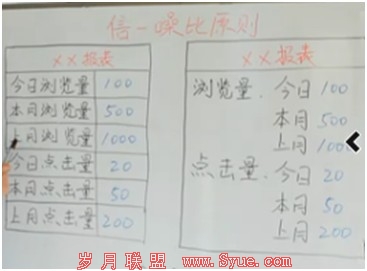 倍-噪比原则
××报表
今日浏览量 100
本月浏览量 500
上月浏览量 1000
今日点击量 20
本月点击量 50
上月点击量 200
××报表
浏览量. 今日 100
本月 500
上月 100
点击量. 今日 20
本月 50
上月 200
岁月联盟 www.Syue.com